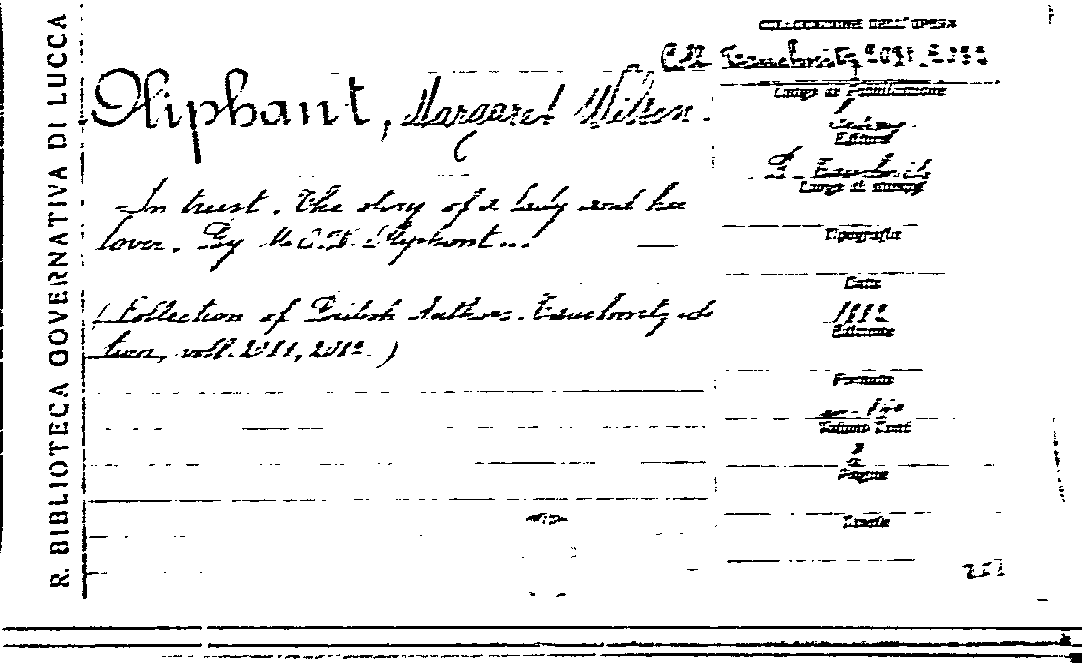 R. BIBLIOTECA GOVERNATIVA DI LUCCA
Oliphant, Margaret Wilson.
In trust. The story of a lady and her
lover. By M.O.W. Oliphant...
(Collection of British Authors. Tauchnitz edi
tion, voll. 2011, 2012.)
Coll. Tauchnitz
Luogo di
Editore
B. Tauchnitz
Luogo di stampa
Tipografia
Data
1882
Edizione
Formato
in-16º
Volumi
2
Pagine